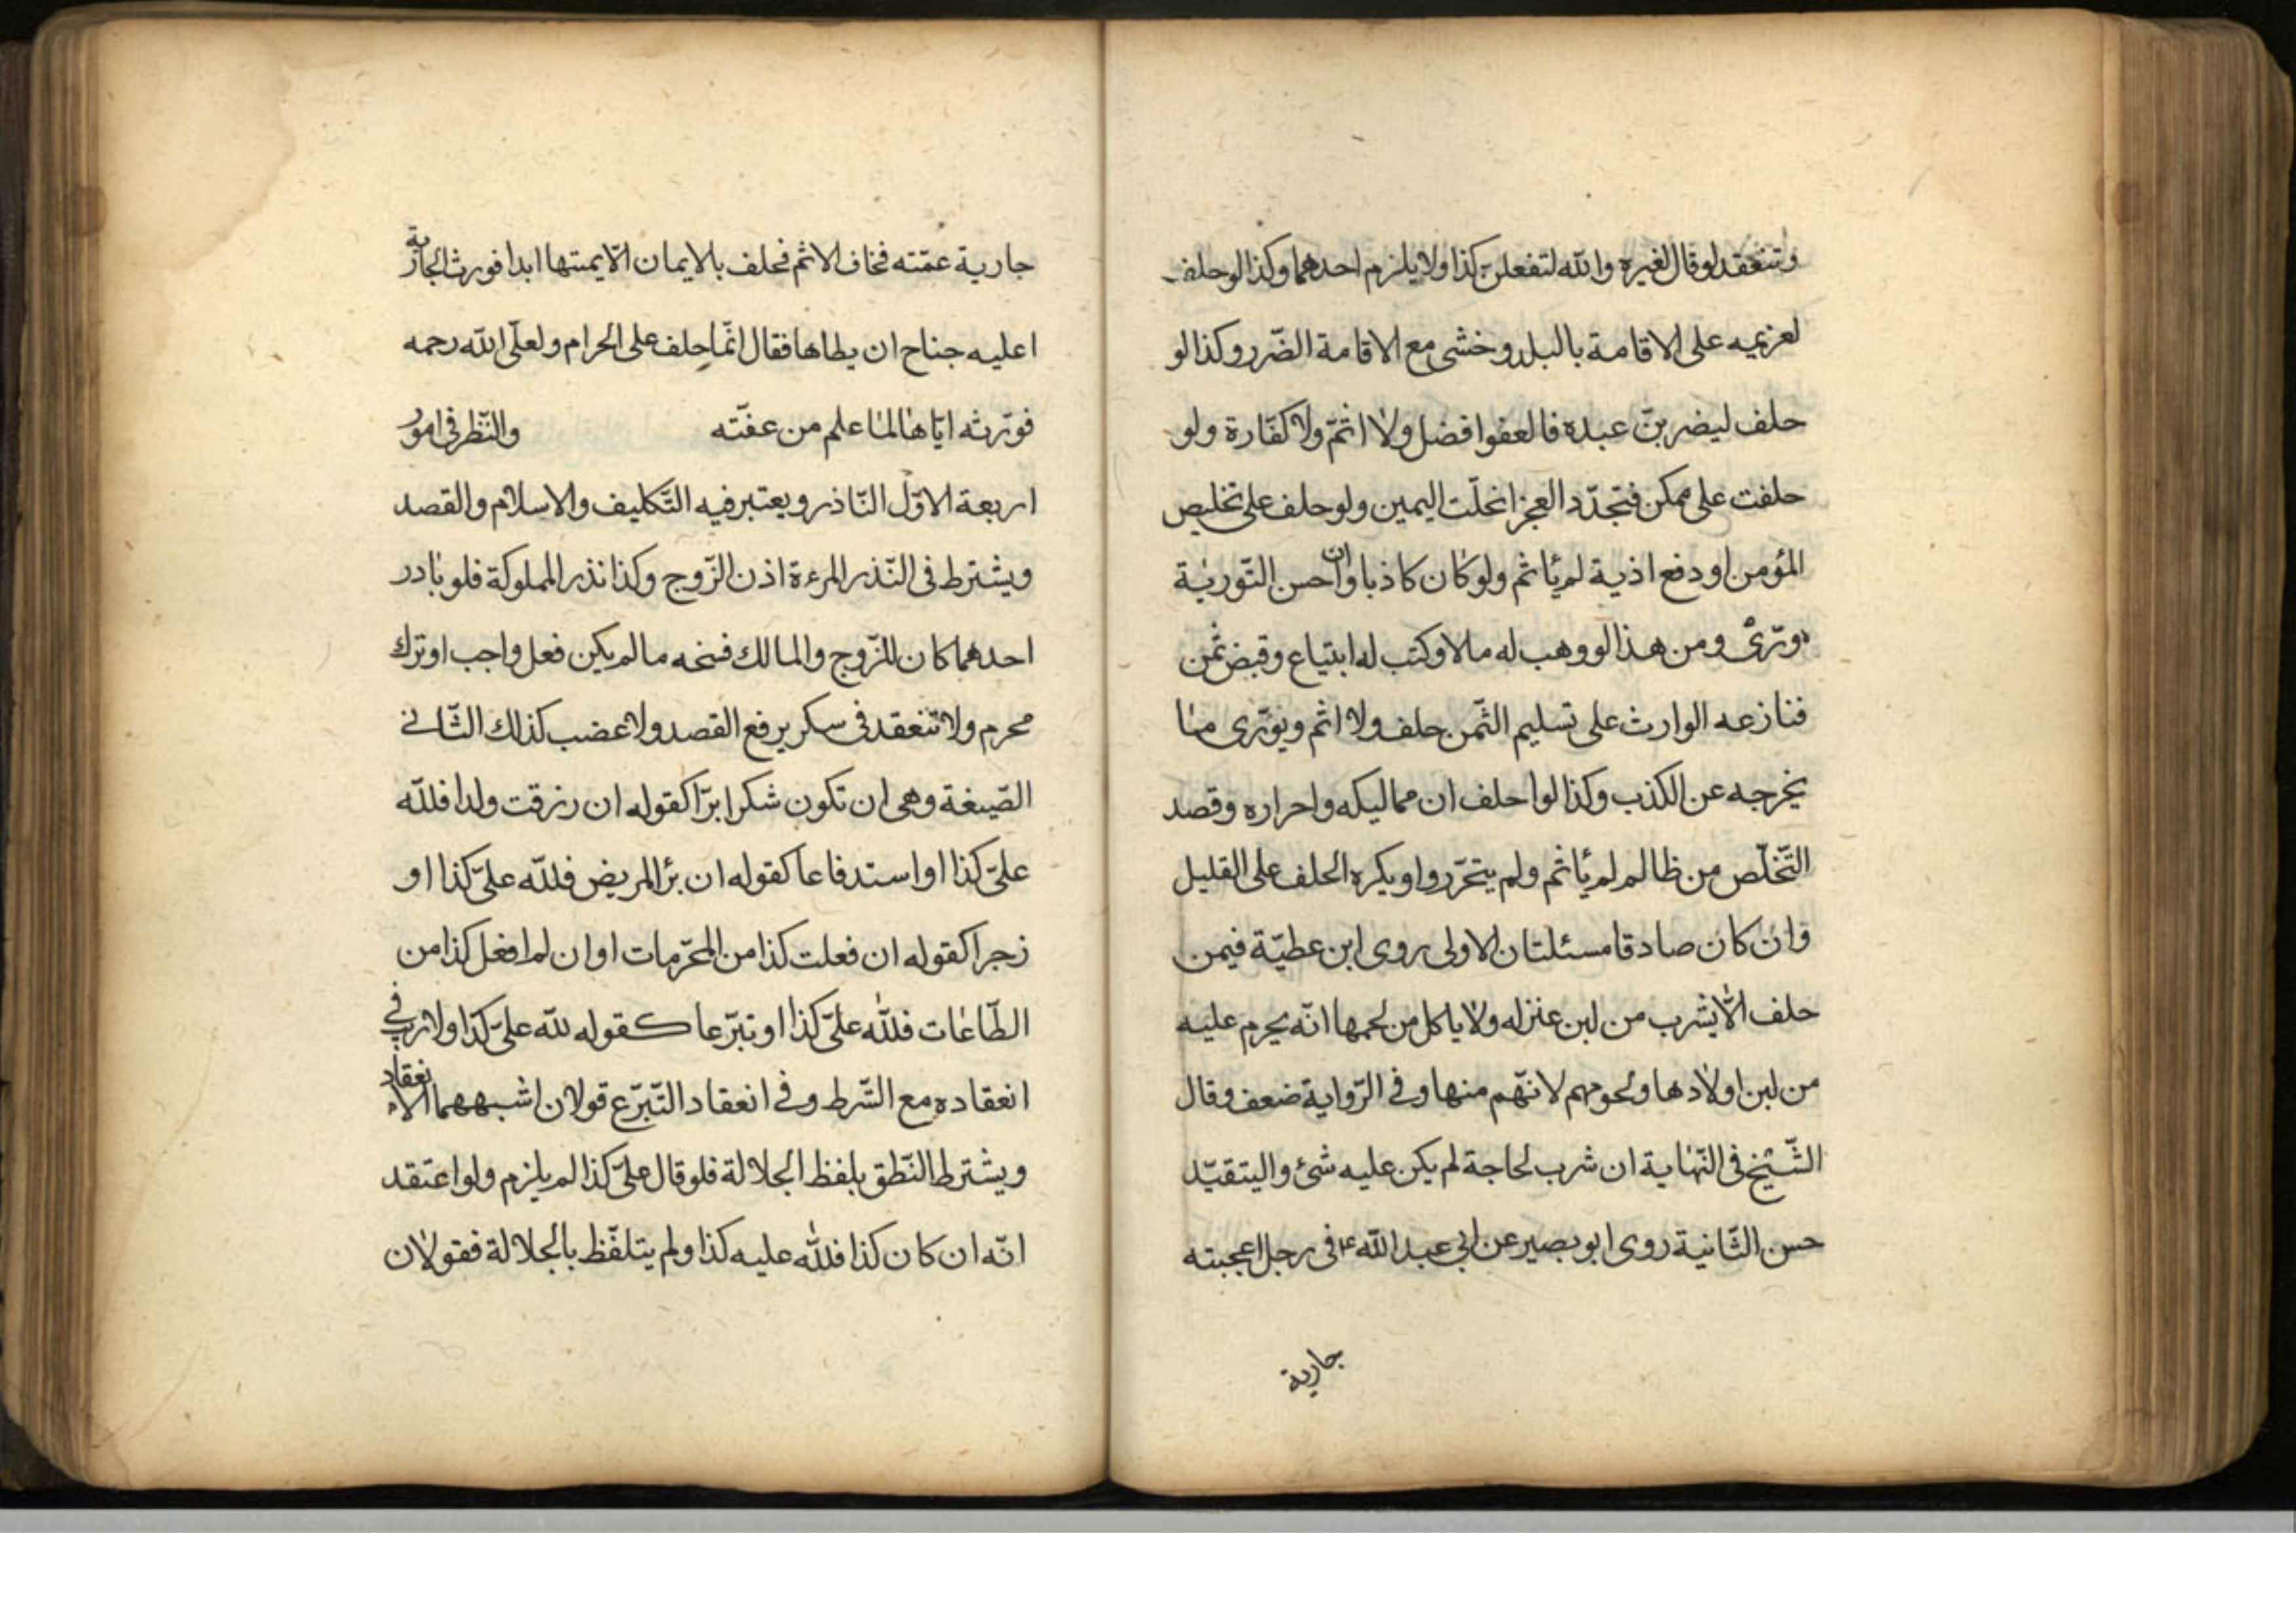 وتنعقد لو قال لغيره والله لتفعلن كذا ولا يلزم احدهما وكذا لو حلف
لغريمه على الاقامة بالبلد وخشى مع الاقامة الضّرر وكذا لو
حلف ليضربنّ عبده فالعفوا فضل ولا اثمّ ولا كفّارة ولو
حلفت على ممكن فتجدّد العجز انحلّت اليمين ولو حلف على تخليص
المؤمن او دفع اذية لم يأثم ولو كان كاذبا وان احسن التّورية
ورّى ومن هذا لو وهب له مالا وكتب له ابتياع وقبض ثمن
فنازعه الوارث على تسليم الثّمن حلف ولا اثم ويورّى مما
يخرجه عن الكذب وكذا لوا حلف ان مماليكه واحراره وقصد
التّخلّص من ظالم لم يأثم ولم يتحرّروا ويكره الحلف على القليل
وان كان صادقا مسئلتان الاولى روى ابن عطيّة فيمن
حلف الّا يشرب من لبن عنزله ولا ياكل من لحمها انّه يحرم عليه
من لبن اولادها ولحومهم لانّهم منها وفى الرّواية ضعف وقال
الشّيخ فى النّهاية ان شرب لحاجة لم يكن عليه شئ واليتقيّد
حسن الثّانية روى ابو بصير عن ابى عبد الله ع فى رجل اعجبته
جارية
جارية عمّته فخاف الاثم فحلف بالايمان الّا يمسّها ابدا فورث الجارية
اعليه جناح ان يطاها فقال انّما حلف على الحرام ولعلّ الله رحمه
فورّثه ايّاها لما علم من عفّته والنّظر فى امور
اربعة الاوّل النّاذر ويعتبر فيه التّكليف والاسلام والقصد
ويشترط فى النّذر المرءة اذن الزّوج وكذا نذر المملوكة فلو بادر
احدهما كان للزّوج والمالك فسخه ما لم يكن فعل واجب او ترك
محرم ولا تنعقد فى سكر يرفع القصد ولا غضب كذلك الثّانى
الصّيغة وهى ان تكون شكرا برّا كقوله ان رزقت ولدا فللّه
علىّ كذا او استدفاعا كقوله ان برأ المريض فللّه علىّ كذا او
زجرا كقوله ان فعلت كذا من المحرّمات او ان لم افعل كذا من
الطّاعات فللّه علىّ كذا او تبرّعا كقوله للّه علىّ كذا ولا ريب فى
انعقاده مع الشّرط وفى انعقاد التّبرّع قولان اشبههما الانعقاد
ويشترط النّطق بلفظ الجلالة فلو قال علىّ كذا لم يلزم ولو اعتقد
انّه ان كان كذا فللّه عليه كذا ولم يتلفّظ بالجلالة فقولان